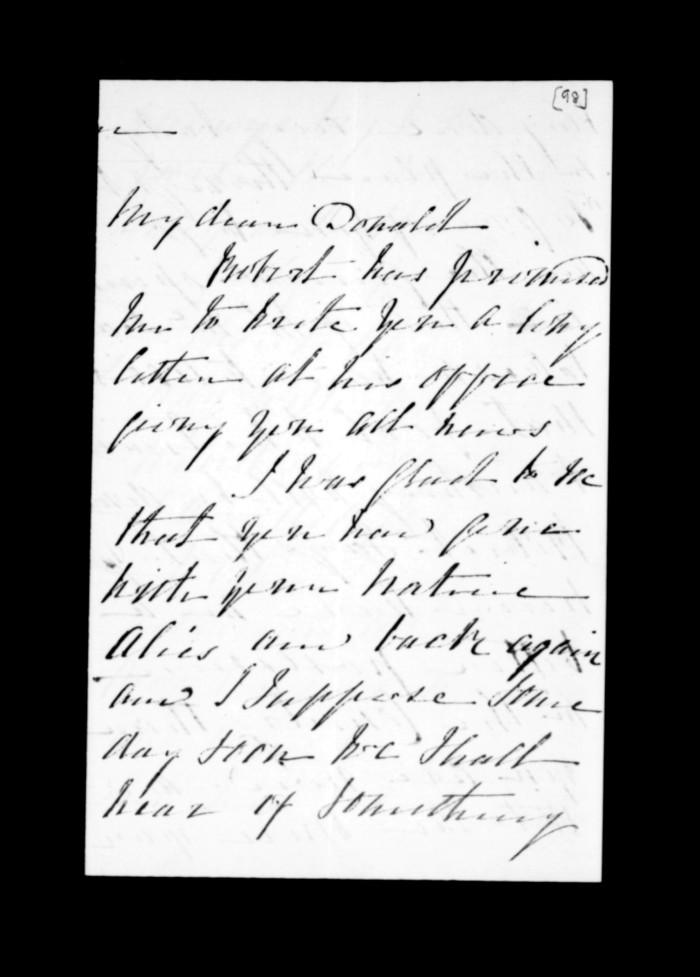 [98]
My dear Donald
Robert has promised
me to write you a long
letter at his office
giving you all news
I was glad to see
that you had gone
with your native
allies and back again
and I suppose some
day soon we shall
hear of something